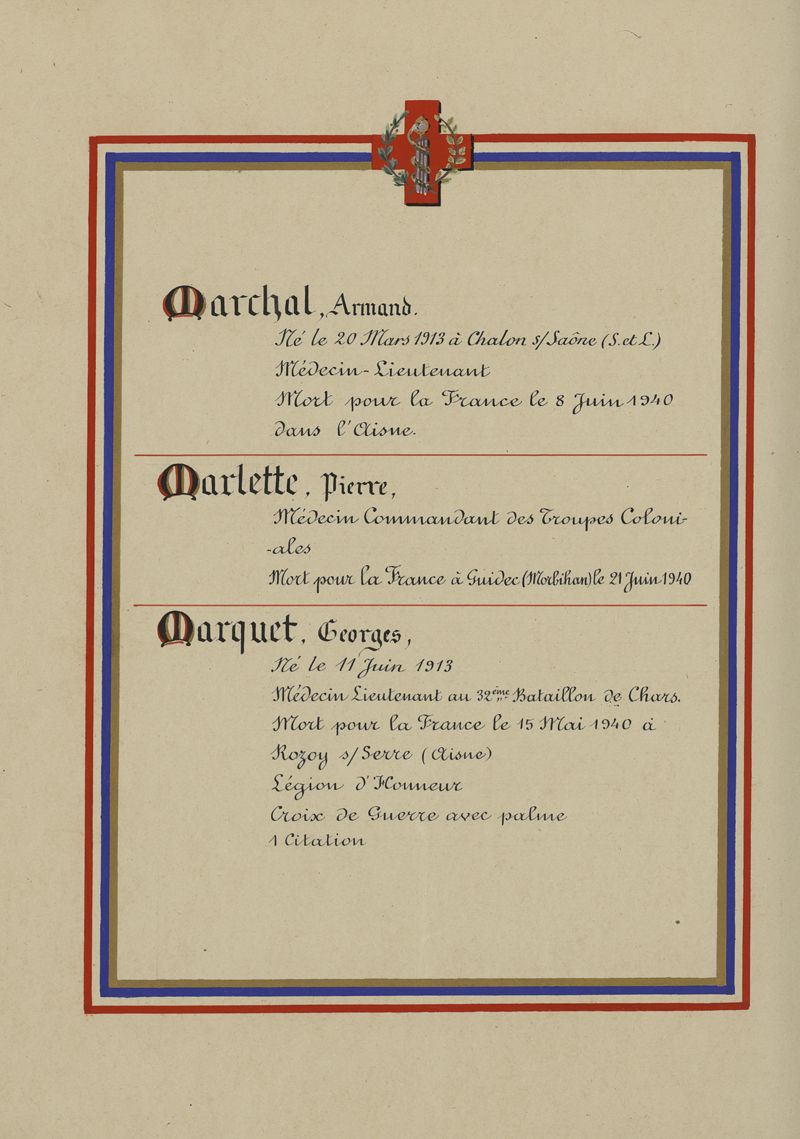 Marchal, Armand.
Né le 20 Mars 1913 à Chalon s/Saône (S.et L.)
Médecin-Lieutenant
Mort pour la France le 8 Juin 1940
dans l'Aisne.
Marlette, Pierre,
Médecin Commandant des Troupes Coloni-
-ales
Mort pour la France à Guidec (Morbihan) le 21 Juin 1940
Marquet, Georges,
Né le 11 Juin 1913
Médecin Lieutenant au 32ème Bataillon de Chars.
Mort pour la France le 15 Mai 1940 à
Rozoy s/Serre (Aisne)
Légion d'Honneur
Croix de Guerre avec palme
1 Citation